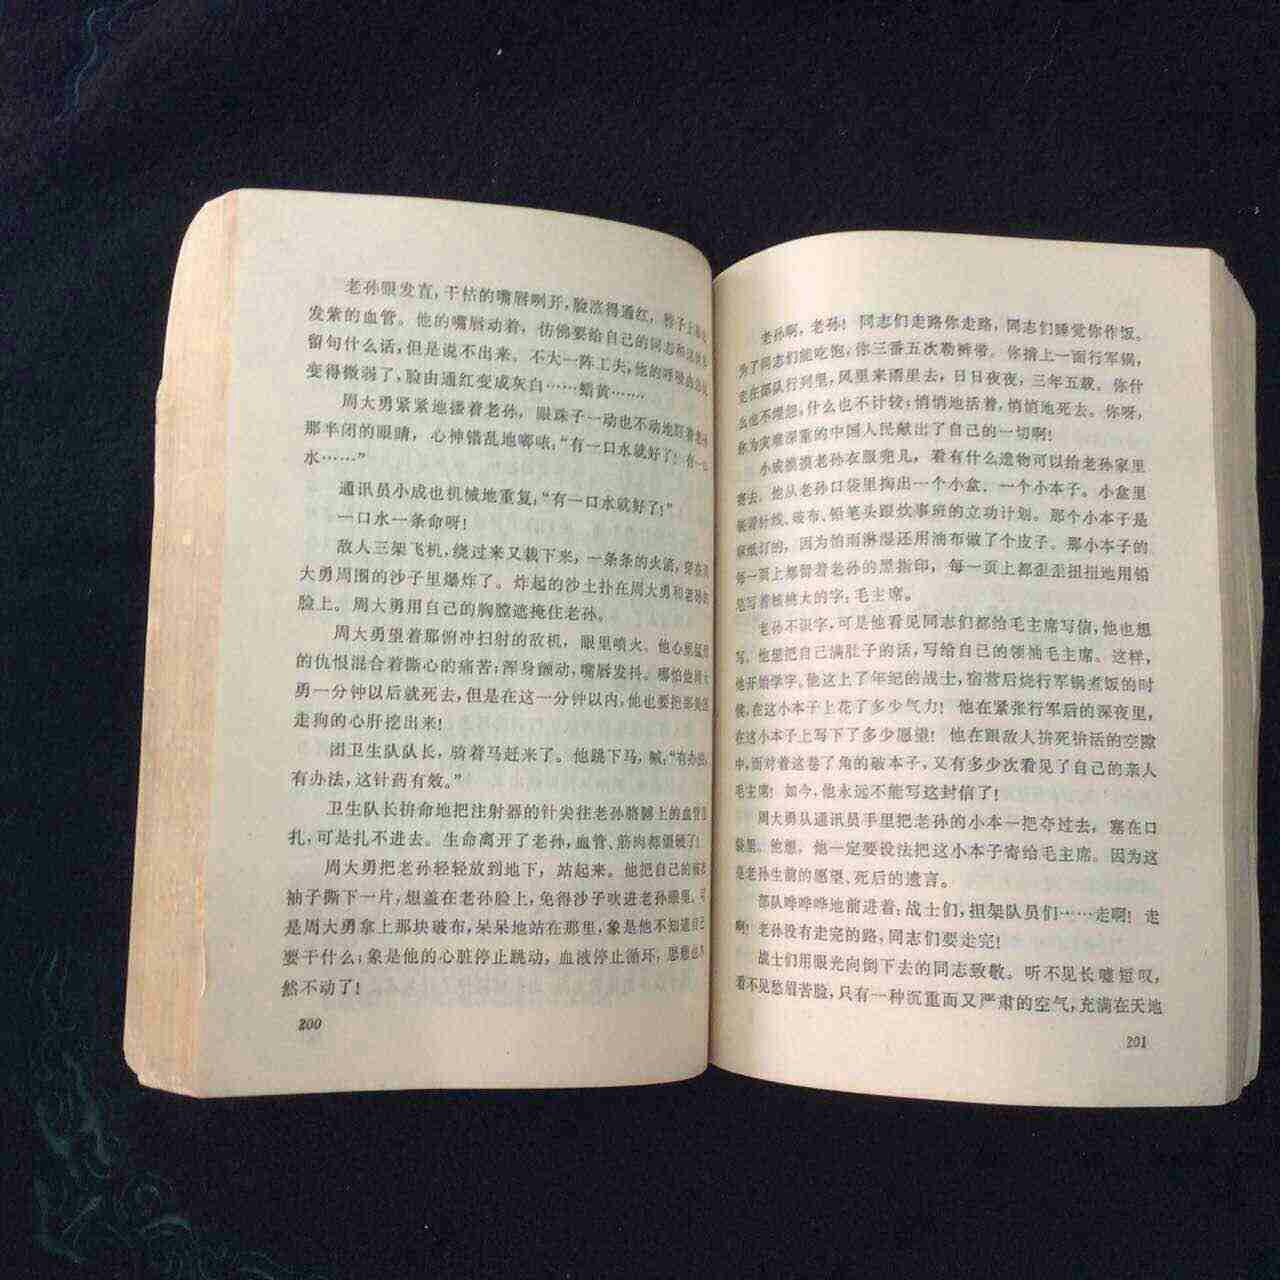 老孙眼发直，干枯的嘴唇咧开，脸涨得通红，脖子上
发紫的血管。他的嘴唇动着，仿佛要给自己的同志和
留句什么话，但是说不出来。不大一阵工夫，他的呼吸
变得微弱了，脸由通红变成灰白……蜡黄……
周大勇紧紧地搂着老孙，眼珠子一动也不动地盯着老孙
那半闭的眼睛，心神错乱地嘟哝：“有一口水就好了！有一口
水……”
通讯员小成也机械地重复：“有一口水就好了！”
一口水一条命呀！
敌人三架飞机，绕过来又栽下来，一条条的火流，穿在周
大勇周围的沙子里爆炸了。炸起的沙土扑在周大勇和老孙的
脸上。周大勇用自己的胸膛遮掩住老孙。
周大勇望着那俯冲扫射的敌机，眼里喷火。他心里猛烈
的仇恨混合着撕心的痛苦；浑身颤动，嘴唇发抖。哪怕他周大
勇一分钟以后就死去，但是在这一分钟以内，他也要把那美国
走狗的心肝挖出来！
团卫生队队长，骑着马赶来了。他跳下马，喊：“有办法，
有办法，这针药有效。”
卫生队长拚命地把注射器的针尖往老孙胳膊上的血管里
扎，可是扎不进去。生命离开了老孙，血管、筋肉都僵硬了！
周大勇把老孙轻轻放到地下，站起来。他把自己的
袖子撕下一片，想盖在老孙脸上，免得沙子吹进老孙眼里。可
是周大勇拿上那块破布，呆呆地站在那里，象是他不知道自己
要干什么；象是他的心脏停止跳动，血液停止循环，思想也
然不动了！
200
老孙啊，老孙！同志们走路你走路，同志们睡觉你作饭。
为了同志们能吃饱，你三番五次勒裤带。你揹上一面行军锅，
走在部队行列里，风里来雨里去，日日夜夜，三年五载。你什
么也不埋怨，什么也不计较；悄悄地活着，悄悄地死去。你呀，
你为灾难深重的中国人民献出了自己的一切啊！
小成摸摸老孙衣服兜儿，看有什么遗物可以给老孙家里
寄去。他从老孙口袋里掏出一个小盒，一个小本子。小盒里
装着针线、破布、铅笔头跟炊事班的立功计划。那个小本子是
麻纸打的，因为怕雨淋湿还用油布做了个皮子。那小本子的
每一页上都留着老孙的黑指印，每一页上都歪歪扭扭地用铅
笔写着核桃大的字：毛主席。
老孙不识字，可是他看见同志们都给毛主席写信，他也想
写。他想把自己满肚子的话，写给自己的领袖毛主席。这样，
他开始学字。他这上了年纪的战士，宿营后烧行军锅煮饭的时
候，在这小本子上花了多少气力！他在紧张行军后的深夜里，
在这小本子上写下了多少愿望！他在跟敌人拚死拚活的空隙
中，面对着这卷了角的破本子，又有多少次看见了自己的亲人
毛主席！如今，他永远不能写这封信了！
周大勇从通讯员手里把老孙的小本一把夺过去，塞在口
袋里。他想，他一定要设法把这小本子寄给毛主席。因为这
是老孙生前的愿望、死后的遗言。
部队哗哗哗地前进着；战士们，担架队员们……走啊！走
啊！老孙没有走完的路，同志们要走完！
战士们用眼光向倒下去的同志致敬。听不见长嘘短叹，
看不见愁眉苦脸，只有一种沉重而又严肃的空气，充满在天地
201